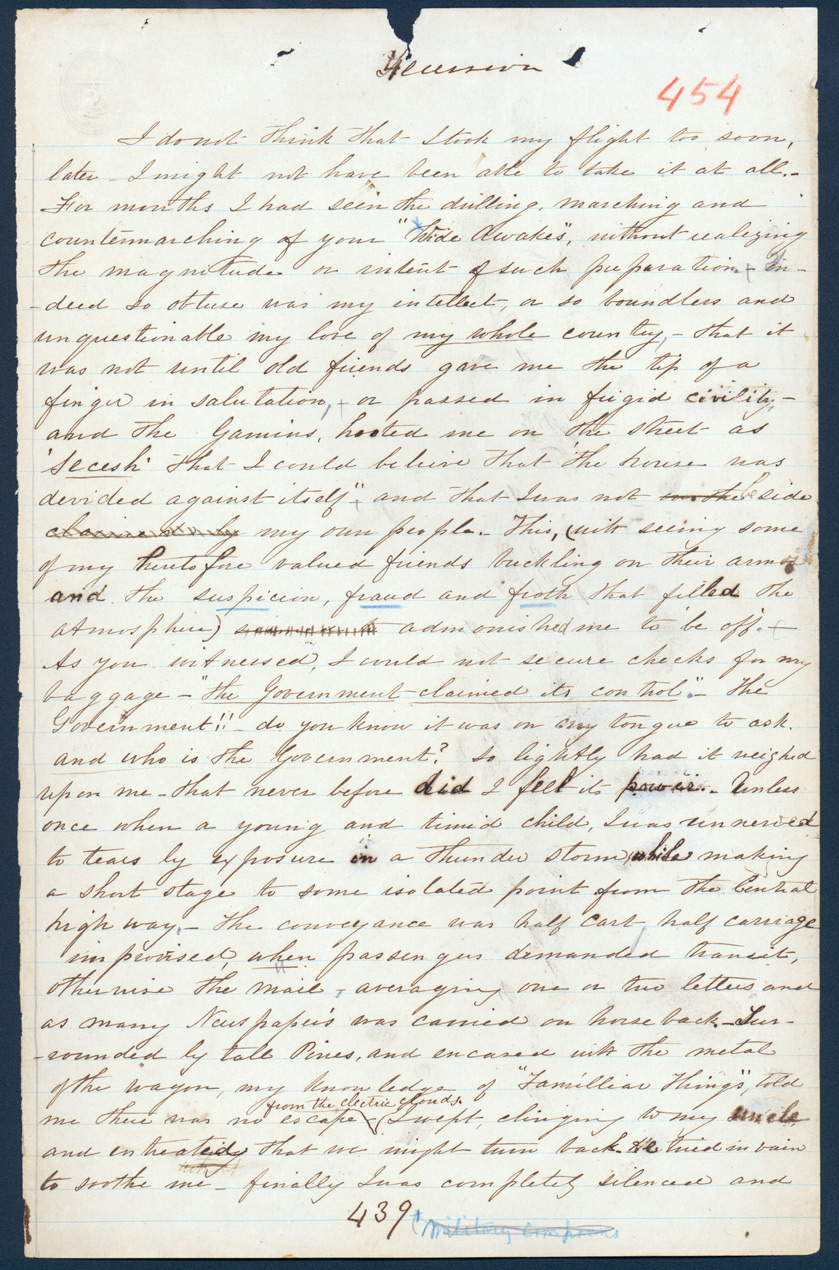 Secession
454
I do not think that I took my flight too soon,
later - I might not have been able to take it at all. -
For months I had seen the drilling, marching and
countermarching of your "Wide Awakes", without realizing
the magnitude or intent of such preparation - In-
-deed so obtuse was my intellect, or so boundless and
unquestionable my love of my whole country, - that it
was not until old friends gave me the tip of a
finger in salutation, + or passed in frigid civility, -
and the Gamins, hooted me on the street as
'Secesh' that I could beleive that "the house was
divided against itself" + and that I was not beside
my own people. This, (with seeing some
of my heretofore valued friends buckling on their armor
and the suspicion, fraud and froth that filled the
atmosphere) admonished me to be off. +
As you witnessed, I could not secure checks for my
baggage - "the Government claimed its control". - The
Government!! - do you know it was on my tongue to ask.
and who is the Government? So lightly had it weighed
upon me - that never before did I feel its power. - Unless
once when a young and timid child, I was unnerved
to tears by exposure in a thunder storm while making
a short stage to some isolated point from the Central
high way. - The conveyance was half cart half carriage
improvised, when passengers demanded transit,
otherwise the mail, averaging one or two letters and
as many Newspapers was carried on horse back. - Sur-
-rounded by tall Pines, and encased with the metal
of the wagon, my knowledge of "Familliar Things", told
from the electric clouds.
me there was no escape I wept, clinging to my uncle
and entreated that we might turn back. He tried in vain
to soothe me - finally I was completely silenced and
439
Military Companies